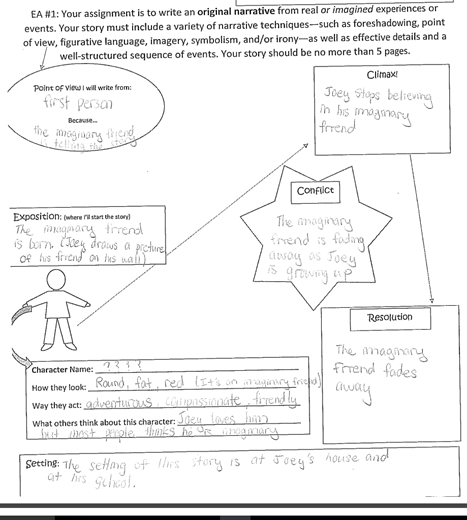 EA #1: Your assignment is to write an original narrative from real or imagined experiences or
events. Your story must include a variety of narrative techniques---such as foreshadowing, point
of view, figurative language, imagery, symbolism, and/or irony—as well as effective details and a
well-structured sequence of events. Your story should be no more than 5 pages.
Point of View I will write from:
first person
Because...
the imaginary friend
is telling the story
Climax!
Joey stops believing
in his imaginary
friend
Conflict
The imaginary
friend is fading
away as Joey
is growing up
Exposition: (where I'll start the story)
The imaginary friend
is born (Joey draws a picture
of his friend on his wall)
Resolution
The imaginary
friend fades
away
Character Name: ????
How they look: Round, fat, red (It's an imaginary friend)
Way they act: adventurous, compassionate, friendly
What others think about this character: Joey loves him
but most people thinks he is imaginary
Setting: The setting of this story is at Joey's house and
at his school.